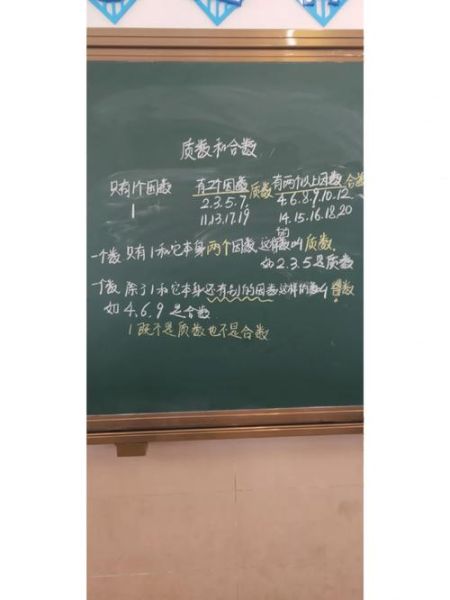 质数和合数
只有1个因数 有2个因数 质数 有两个以上因数 合数
1 2.3.5.7. 4.6.8.9.10.12
11.13.17.19 14.15.16.18.20
一个数 只有1和它本身两个因数,这样的数叫质数.
如2.3.5是质数
一个数 除了1和它本身还有别的因数,这样的数叫合数
如4,6,9是合数
1既不是质数也不是合数